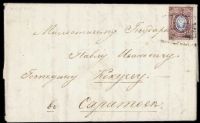 Милостивому Государю
Павлу Ивановичу
Господину
въ
Саратовъ